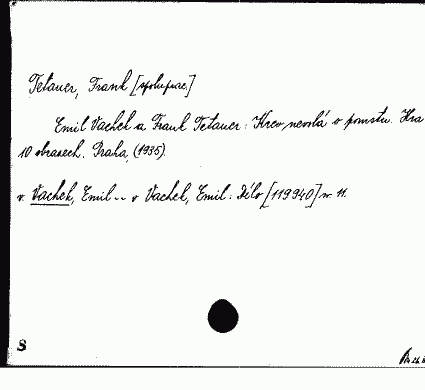 Tetauer, Frank [spoluprac.]
Emil Vachek a Frank Tetauer: Krev nevolá o pomstu. Hra
10 obrazech. Praha, (1935).
v. Vachek, Emil -- v Vachek, Emil: Dílo [119940] sv. 11.
S